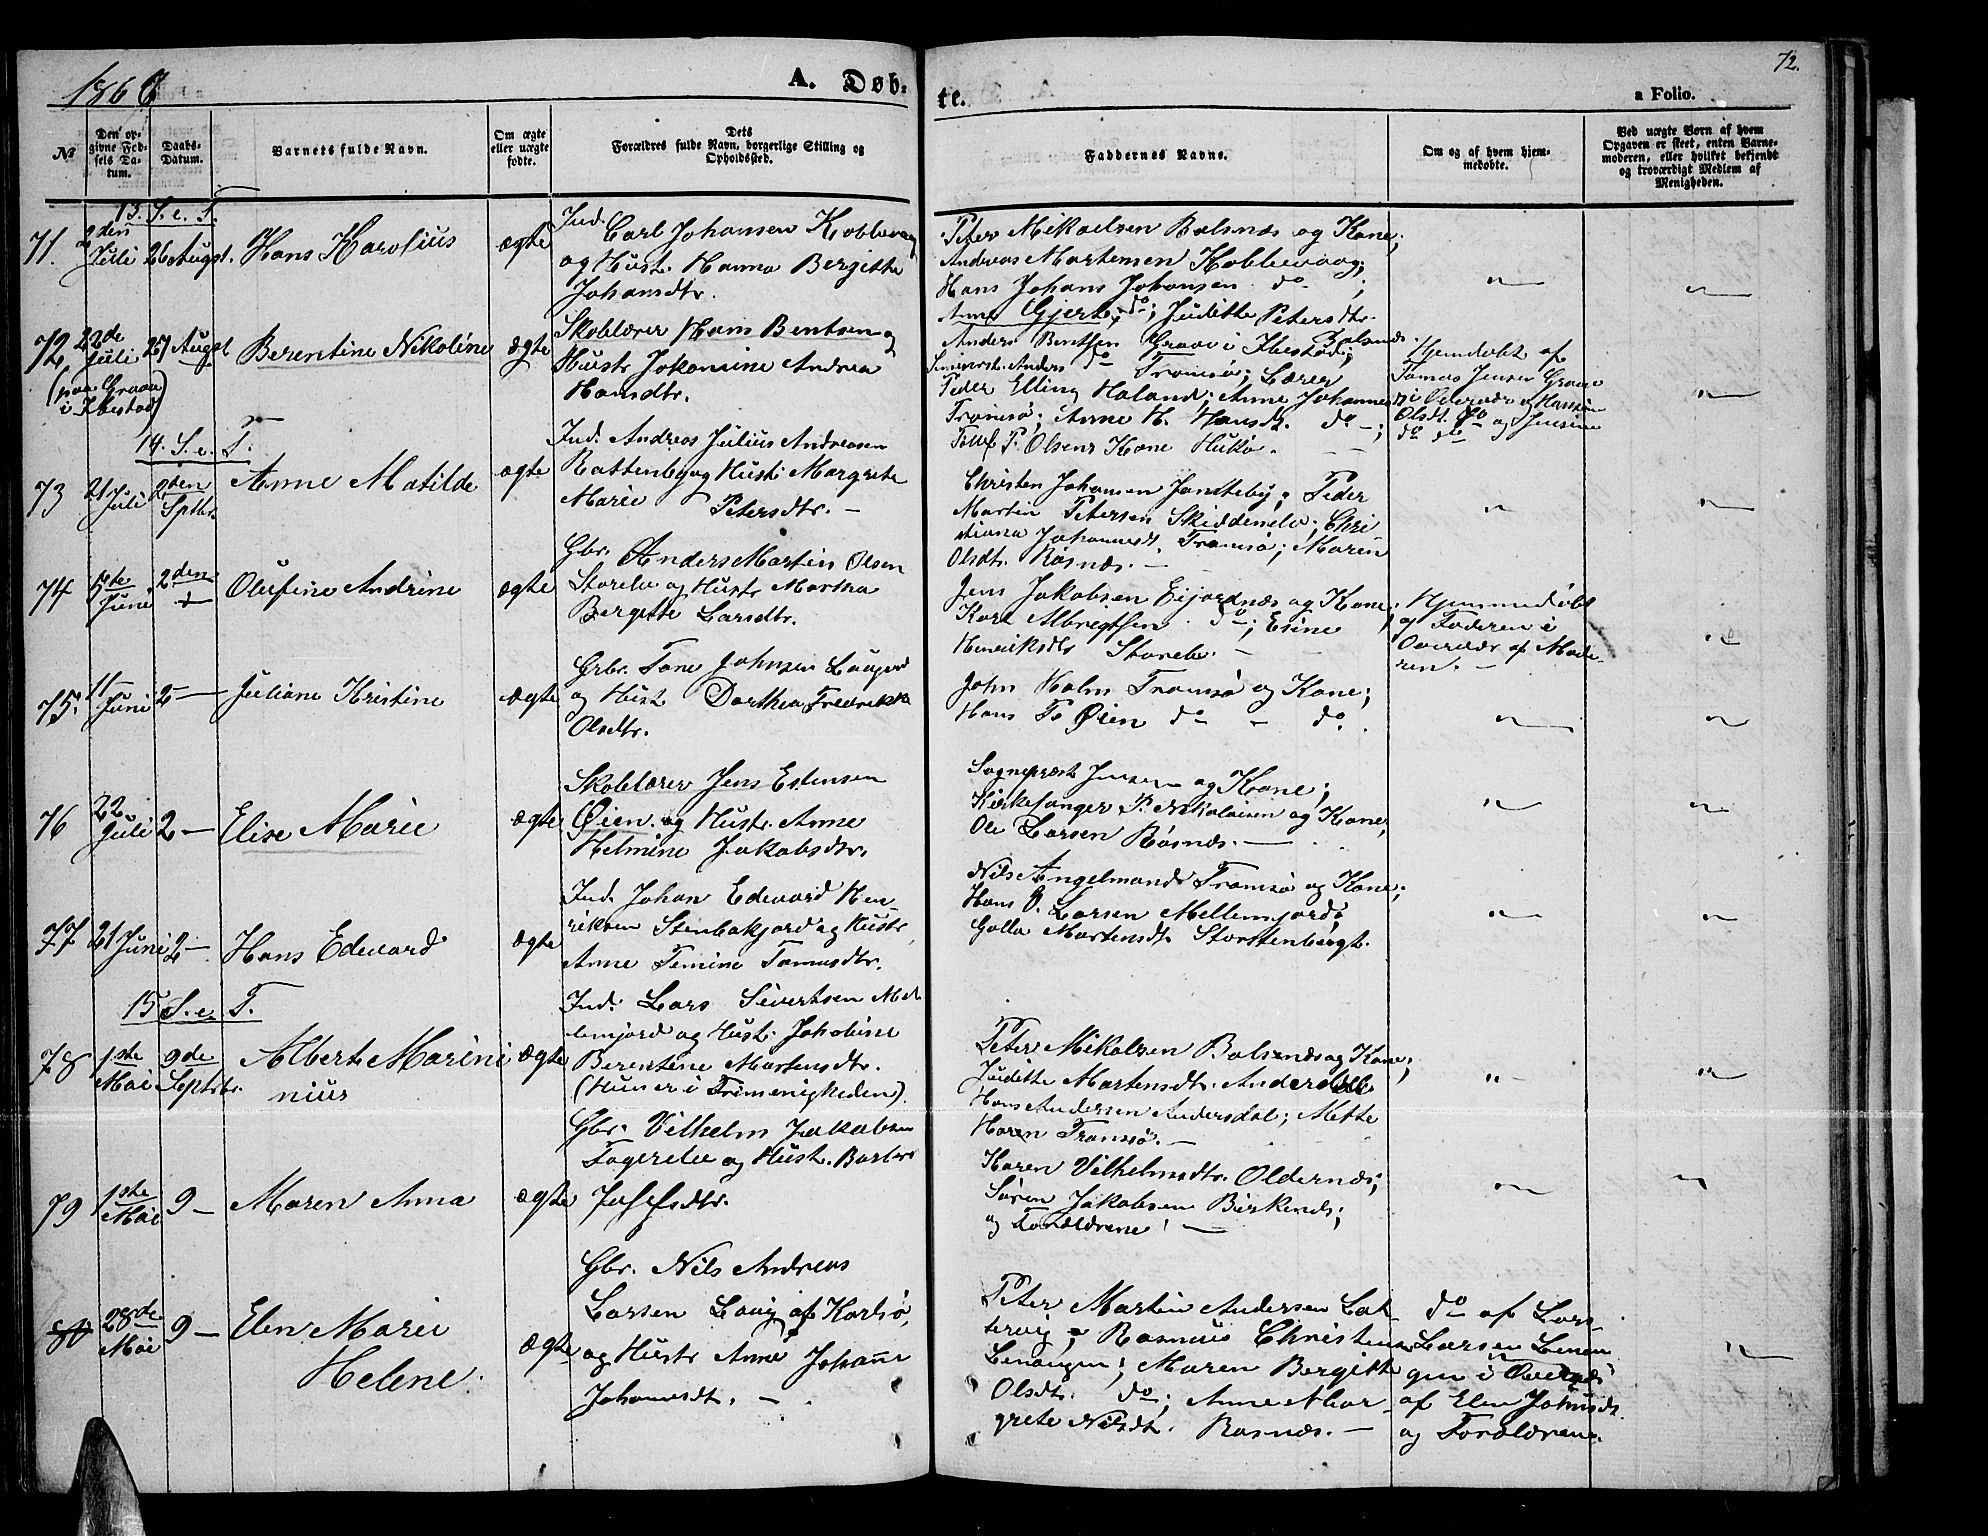 1866
A. Døb-
te.
72.
a Folio.
№
Den opgivne Fødsels Datum.
Daabs-Datum.
Varnets fulde Navn.
Om ægte eller uægte fødte.
Dets Forældres fulde Navn, borgerlige Stilling og Opholdssted.
Faddernes Navne.
Om og af hvem hjemmedøbte.
Ved uægte Børn af hvem Opgaven er skeet, enten Barnemoderen, eller hvilket bekjendt og troværdigt Medlem af Menigheden.
13. S. e. T.
71. 2den Juli 26 Augst. Hans Karolius ægte
Ind. Carl Johansen Koblevag
og Hust. Hanna Bergitte
Johansdtr.
Peter Mikaelsen Balsnæs og Kone;
Andreas Mortensen Koblevaag;
Hans Johans Johansen do ;
Anne Gjert, do; Juditte Petersdtr.
72 22de Juli 27 Augst Berentine Nikoline ægte
(paa Graae
i Ibestad)
Skolelærer Hans Bentsen og
Hustr Jakomine Andrea
Hansdtr.
Anders Bentsen Graae i Ibestad;
Anders do Tromsø; Lærer
Peder Elling Haland; Anne Johannesdt
Tromsø; Anne H. Hansdt. do — ;
P. Olsens Kone
Hjemdøbt af
Tomas Jensen Graae
i Overvær af
Olsdt. do og Jensine
do do
14. S. e. T.
73 21 Juli 2den Sptbr. Anne Matilde ægte
Ind. Andreas Julius Andreasen
Rattenby og Hust. Margrete
Marie Petersdtr. —
Christen Johansen Janteby; Peder
Martin Petersen Skiddenelv; Chri
stiana Johannesdt. Tromsø; Maren
Olsdt. Røsnæs. —
74 5te Juni 2den Olufine Andrine ægte
Gbr. Anders Martin Olsen
Storelv og Hustr Martha
Bergitte Larsdtr.
Jens Jakobsen Eijordnæs og Kone;
Karl Albregtsen do; Esine
Henriksdtr Storelv. —
Hjemmedøbt
af Faderen i
Overvær af Mode-
ren. —
75. 11 Juni 2 — Juliane Kristine ægte
Gbr. Tone Johnsen
og Hust Dorthea Fredrikke
Olsdtr.
John Holm Tromsø og Kone;
Hans P. Øien do — do.
76 22 Juli 2 — Elise Marie ægte
Skolelærer Jens Estensen
Øien og Hustr. Anne
Helmine Jakobsdtr.
Sognepræst Jensen og Kone;
Kirkesanger P. Nikolaisen og Kone,
Ole Larsen Røsnæs. —
77 21 Juni 2 — Hans Edevard ægte
Ind. Johan Edevard Hen-
riksen Stenbakjord og Hustr.
Anne Temine Tomasdtr.
Nils Angelmand Tromsø og Kone;
Hans O. Larsen Mellemjord;
Golla Mortensdt. Storstenbergt.
15 S. e. T.
78 1ste Mai 9de Septbr Albert Marini
nius ægte
Ind. Lars Sivertsen Mel
lemjord og Hust. Jakobine
Berentine Mortensdtr.
(Huser i Frimenigheden).
Peter Mikalsen Balsnæs og Kone;
Juditte Mortensdt. Andersdal
Hans Andersen Andersdal; Mette
Haren Tromsø. —
79 1ste Mai 9 — Maren Anna ægte
Gbr. Vilhelm Jakobsen
Fagerelv og Hust. Barbro
Josefsdtr.
Karen Vilhelmsdtr. Oldernæs;
Søren Jakobsen Birkenes;
og Forældrene! —
80 28de Mai 9 — Elen Marie
Helene. ægte
Gbr. Nils Andreas
Larsen Lanig af Karlsø,
og Hustr Anne Johanne
Johannesdt. — .
Peter Martin Andersen Lat
tervig; Rasmus Christens
Lenangen; Maren Bergitte
Olsdt. do; Anne Mar-
grete Nilsdt. Rasnæs. —
do af Lars
Larsen Lenan
gen i Overvær
af Elen Johnsdt.
og Forældrene.